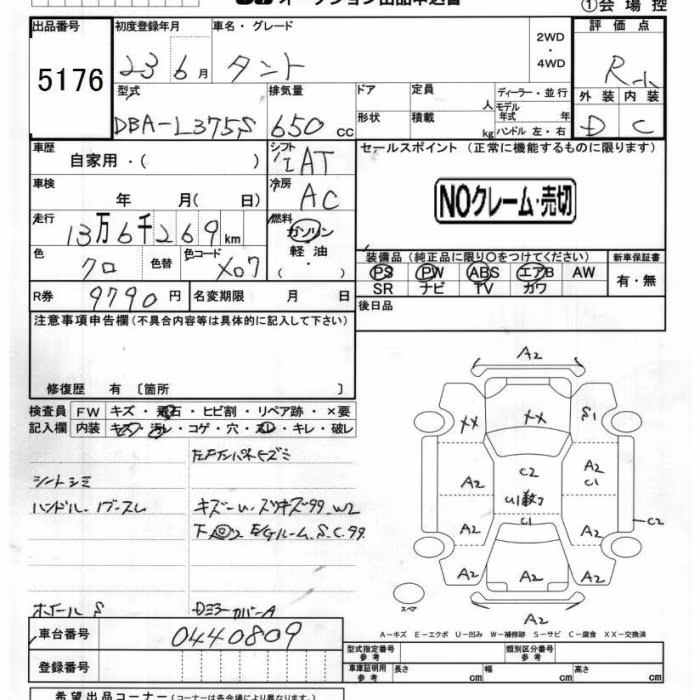 オークション出品申込書
①会場控
出品番号
5176
初度登録年月
23 6月
車名・グレード
タント
2WD
・
4WD
評価点
R
外装 内装
D C
型式
DBA-L375S
排気量
650 cc
ドア
形状
定員
人
積載
kg
ディーラー・並行
モデル年式 年
ハンドル 左・右
車歴
自家用・( )
シフト
AT
車検
年 月( 日)
冷房
AC
走行
13万6千269km
燃料
ガソリン
軽油
・
( )
色
クロ
色替
色コード
X07
R券
9790円
名変期限 月 日
セールスポイント (正常に機能するものに限ります)
NOクレーム・売切
装備品(純正品に限り○をつけてください)
PS PW ABS エアB AW
SR ナビ TV カワ
新車保証書
有・無
後日品
注意事項申告欄(不具合内容等は具体的に記入して下さい)
修復歴 有 〔箇所 〕
検査員記入欄
FW キズ・飛石・ヒビ割・リペア跡・×要
内装 キズ・汚レ・コゲ・穴・スレ・キレ・破レ
シートシミ
ハンドル
キズ
S.C.99
ホイールS
A
A2
XX
XX
S1
A2
C2
A2
C1
U1
C1
A2
A2
C2
A2
A2
A2
A2
スペア
A-キズ E-エクボ U-凹み W-補修跡 S-サビ C-腐食 XX-交換済
車台番号
0440809
登録番号
型式指定番号 参考
類別区分番号 参考
車庫証明用 参考
長さ cm 幅 cm 高さ cm
希望出品コーナー(コーナーは各会場により異なります)